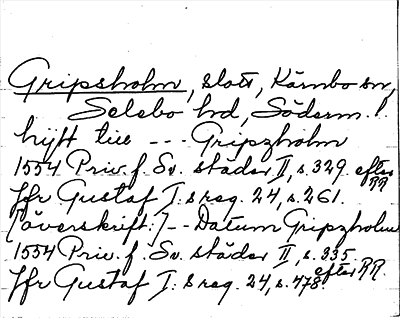 Gripsholm, slott, Kärnbo sn,
Selebo hd, Söderm. l.
hijtt till --- Gripzholm
1554 Priv. f. Sv. städer II, s. 329 efter RR
Jfr Gustaf I:s reg. 24, s. 261.
[överskrift:] -- Datum Gripzholm
1554 Priv. f. Sv. städer II, s. 335 efter RR.
Jfr Gustaf I:s reg. 24, s. 478.